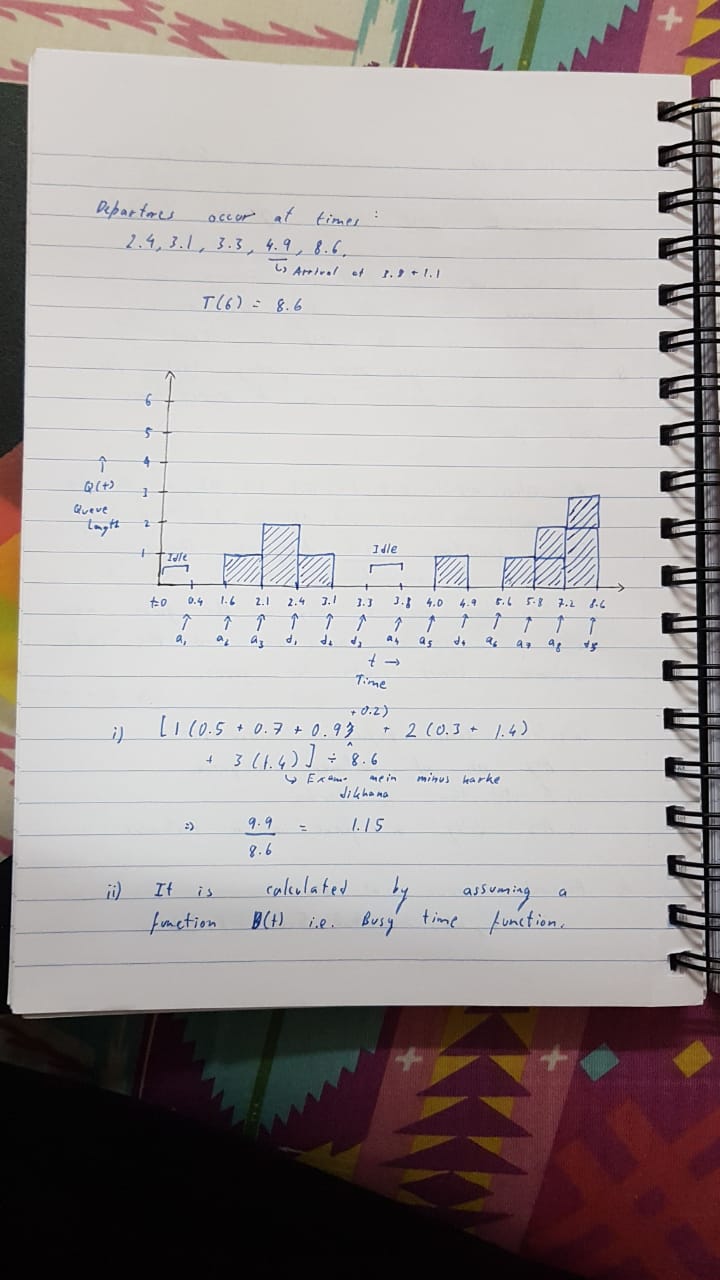 Departures occur at times:
2.4, 3.1, 3.3, 4.9, 8.6,
↳ Arrival at 3.8 + 1.1
T(6) = 8.6
6
5
↑ 4
Q(t) 3
Queue
Length 2
1 Idle Idle
t=0 0.4 1.6 2.1 2.4 3.1 3.3 3.8 4.0 4.9 5.6 5.8 7.2 8.6
↑ ↑ ↑ ↑ ↑ ↑ ↑ ↑ ↑ ↑ ↑ ↑ ↑
a₁ a₂ a₃ d₁ d₂ d₃ a₄ a₅ d₄ a₆ a₇ a₈ d₅
t →
Time
+ 0.2)
i) [1(0.5 + 0.7 + 0.9 + 2(0.3 + 1.4)
+ 3(1.4)] ÷ 8.6
↳ Exam mein minus karke
dikhana
⇒ 9.9 = 1.15
8.6
ii) It is calculated by assuming a
function B(t) i.e. Busy time function.